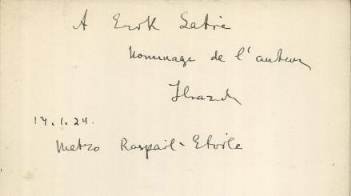 A Erik Satie
Hommage de l'auteur
14.1.24.
Metro Raspail - Etoile